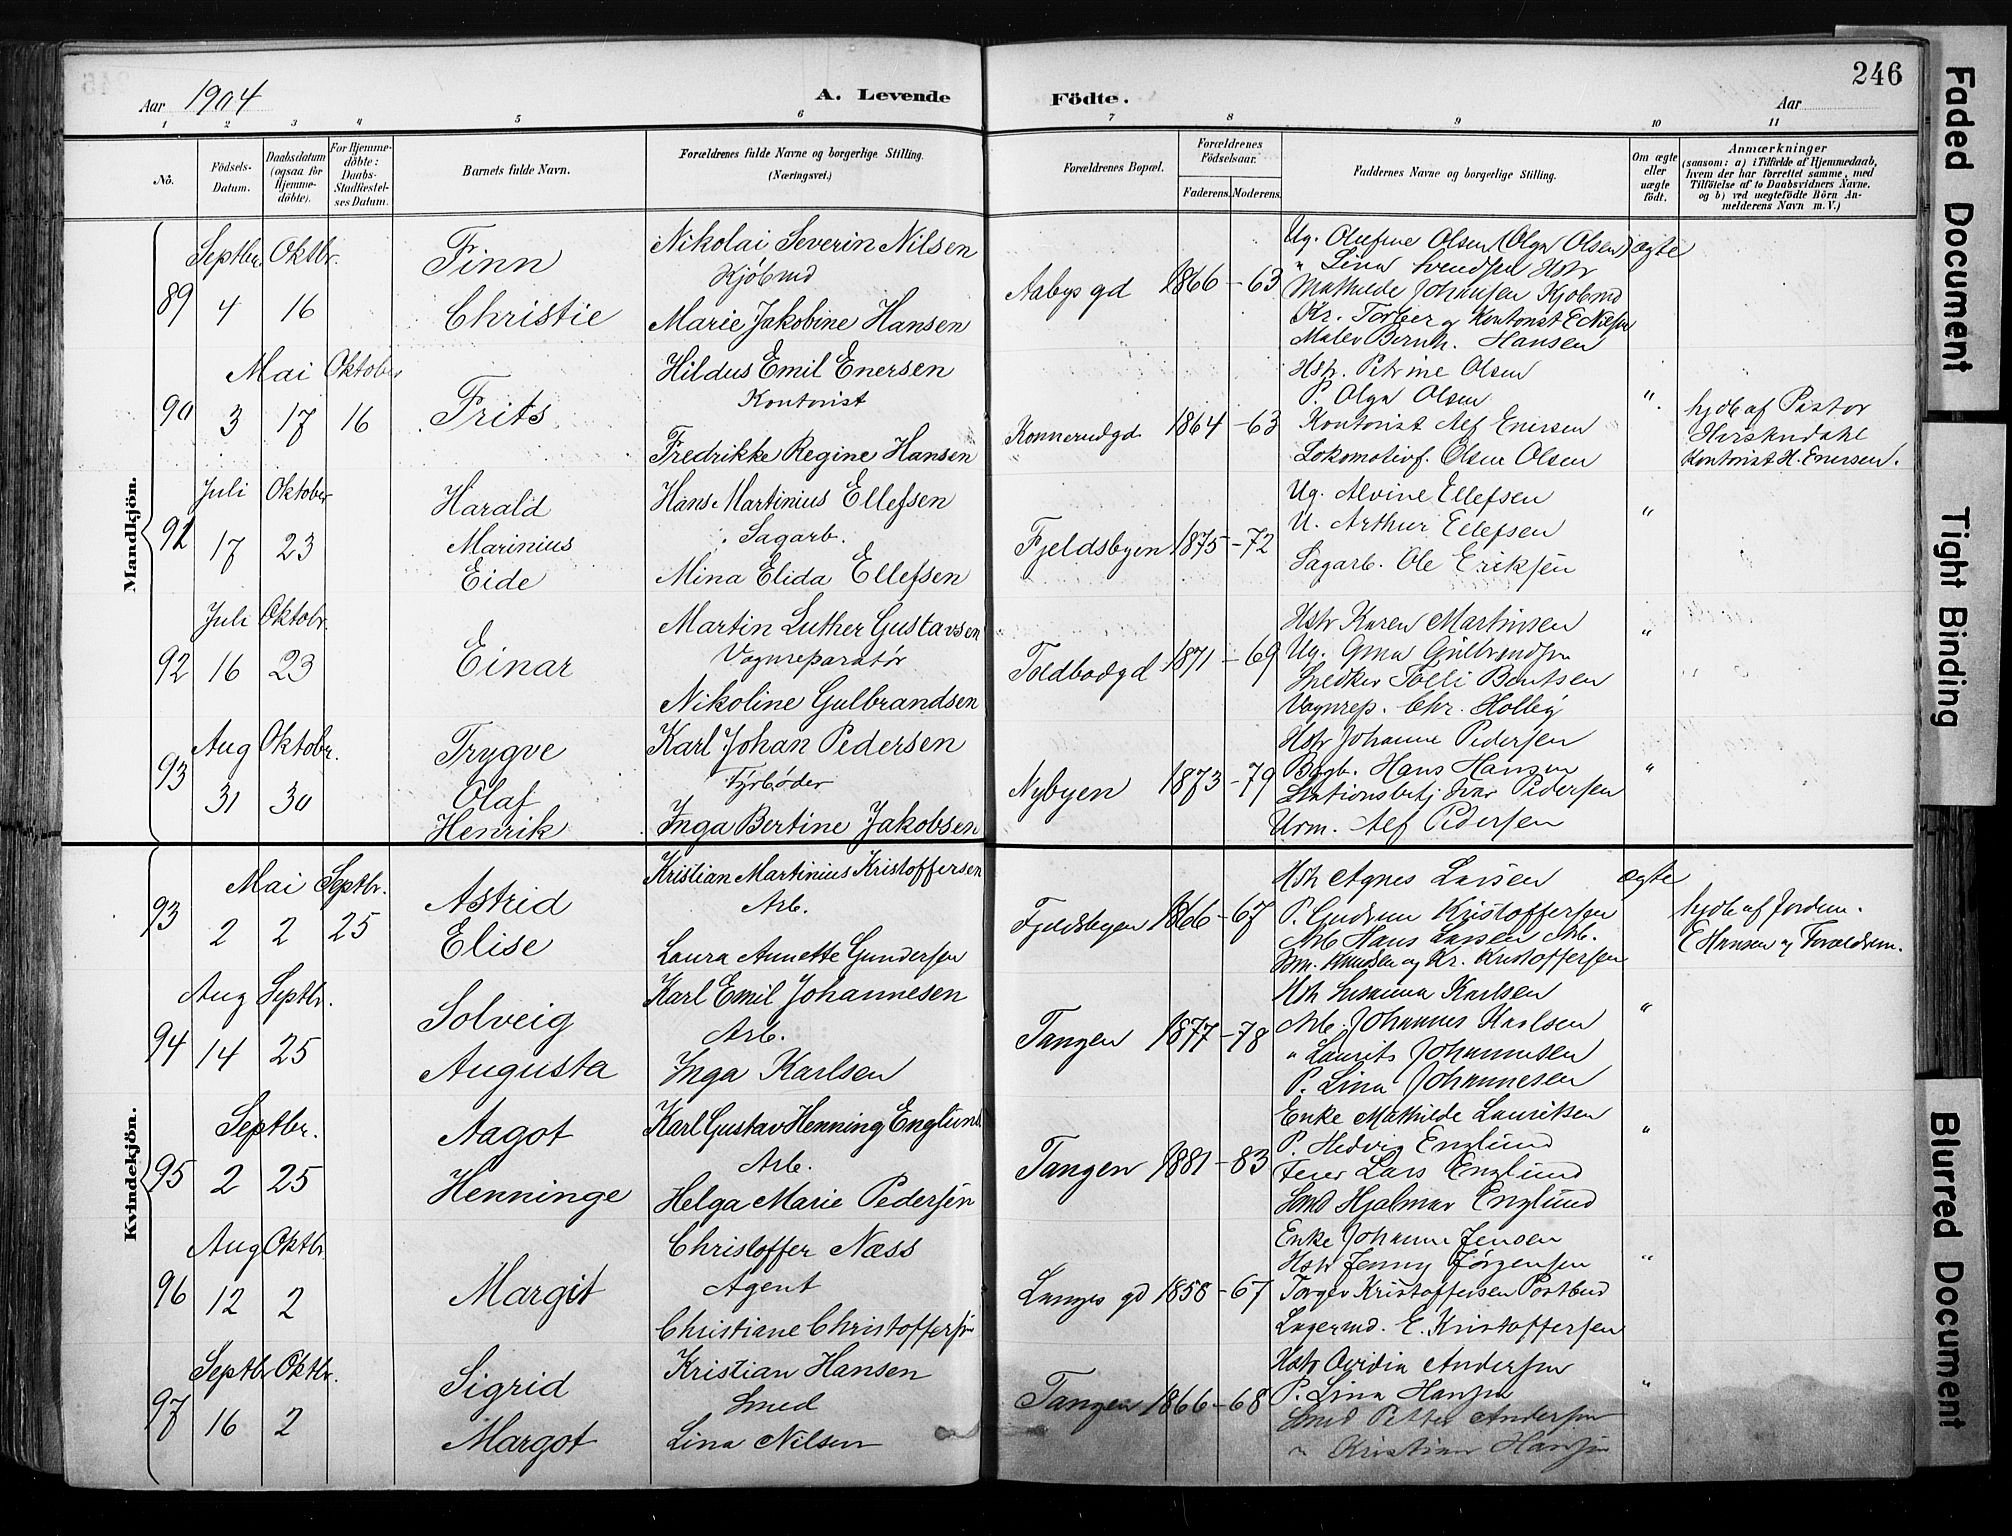 246
Aar 1904
A. Levende Födte.
Aar
1 2 3 4 5 6 7 8 9 10 11
No.
Födsels-Datum.
Daabsdatum (ogsaa for Hjemme-döbte).
For Hjemme-döbte: Daabs-Stadfæstel-ses Datum.
Barnets fulde Navn.
Forældrenes fulde Navne og borgerlige Stilling.
(Næringsvei.)
Forældrenes Bopæl.
Forældrenes Födselsaar.
Faderens. Moderens.
Faddernes Navne og borgerlige Stilling.
Om ægte eller uægte födt.
Anmærkninger
(saasom: a) i Tilfælde af Hjemmedaab,
hvem der har forrettet samme, med
Tilföielse af to Daabsvidners Navne.
og b) ved uægtefödte Börn An-
melderens Navn m. V.)
Mandkjön.
89
Septbr. Oktbr.
4 16
Finn
Christie
Nikolai Severin Nilsen
Kjøbmd
Marie Jakobine Hansen
Aabys gd
1866 - 63
Ug. Olufine Olsen (Olga Olsen)
" Lina Svendsen Hstr
Mathilde Johansen Kjøbmd
Kr. Torber og Kontorist E Nilsen
Maler Bernh. Hansen
ægte
90
Mai Oktober
3 17 16
Frits
Hildus Emil Enersen
Kontorist
Fredrikke Regine Hansen
Konnerudgd
1864 - 63
Hstr. Petrine Olsen
P. Olga Olsen
Kontorist Alf Enersen
Lokomotivf. Olsen Olsen
"
hjdb af Pastor
Hirschndahl
Kontorist H. Enersen.
91
Juli Oktober
17 23
Harald
Marinius
Eide
Hans Martinius Ellefsen
Sagarb.
Mina Elida Ellefsen
Fjeldsbyen
1875 - 72
Ug. Alvine Ellefsen
U. Arthur Ellefsen
Sagarb. Ole Eriksen
"
92
Juli Oktobr.
16 23
Einar
Martin Luther Gustavsen
Vognreparatør
Nikoline Gulbrandsen
Toldbodgd
1871 - 69
Hstr Karen Martinsen
Ug. Gina Gulbrandsen
Snedker Tolli Bentsen
Vognrep. Chr. Holby
"
93
Aug Oktobr.
31 30
Trygve
Olaf
Henrik
Karl Johan Pedersen
Fyrbøder
Inga Bertine Jakobsen
Nybyen
1873 - 79
Hstr Johanne Pedersen
Bagb. Hans Hansen
Stationsbetj Ivar Pedersen
Urm. Alf Pedersen
"
Kvindekjön.
93
Mai Septbr.
2 2 25
Astrid
Elise
Kristian Martinius Kristoffersen
Arb.
Laura Annette Gundersen
Fjeldsbyen
1866 - 67
Hstr Agnes Larsen
P. Gudrun Kristoffersen
Arb Hans Larsen Arb.
Knudsen og Kr. Kristoffersen
ægte
hjdb af Jordm.
E Hansen og Forældrene.
94
Aug Septbr.
14 25
Solveig
Augusta
Karl Emil Johannesen
Arb.
Inga Karlsen
Tangen
1877 - 78
Hstr Susanna Karlsen
Arb. Johannes Karlsen
" Laurits Johannesen
P. Lina Johannesen
"
95
Septbr.
2 25
Aagot
Henninge
Karl Gustav Henning Englund
Arb.
Helga Marie Pedersen
Tangen
1881 - 83
Enke Mathilde Lauritsen
P. Hedvig Englund
Feier Lars Englund
Smd Hjalmar Englund
"
96
Aug Oktbr
12 2
Margit
Christoffer Næss
Agent
Christiane Christoffersen
Langes gd
1858 - 67
Enke Johanne Jensen
Hstr Jenny Jørgensen
Torger Kristoffersen Postbud
Lagermd. E. Kristoffersen
"
97
Septbr Oktbr.
16 2
Sigrid
Margot
Kristian Hansen
Smed
Lina Nilsen
Tangen
1866 - 68
Hstr Ovidia Andersen
P. Lina Hansen
Smed Petter Andersen
" Kristian Hansen
"
Faded Document
Tight Binding
Blurred Document